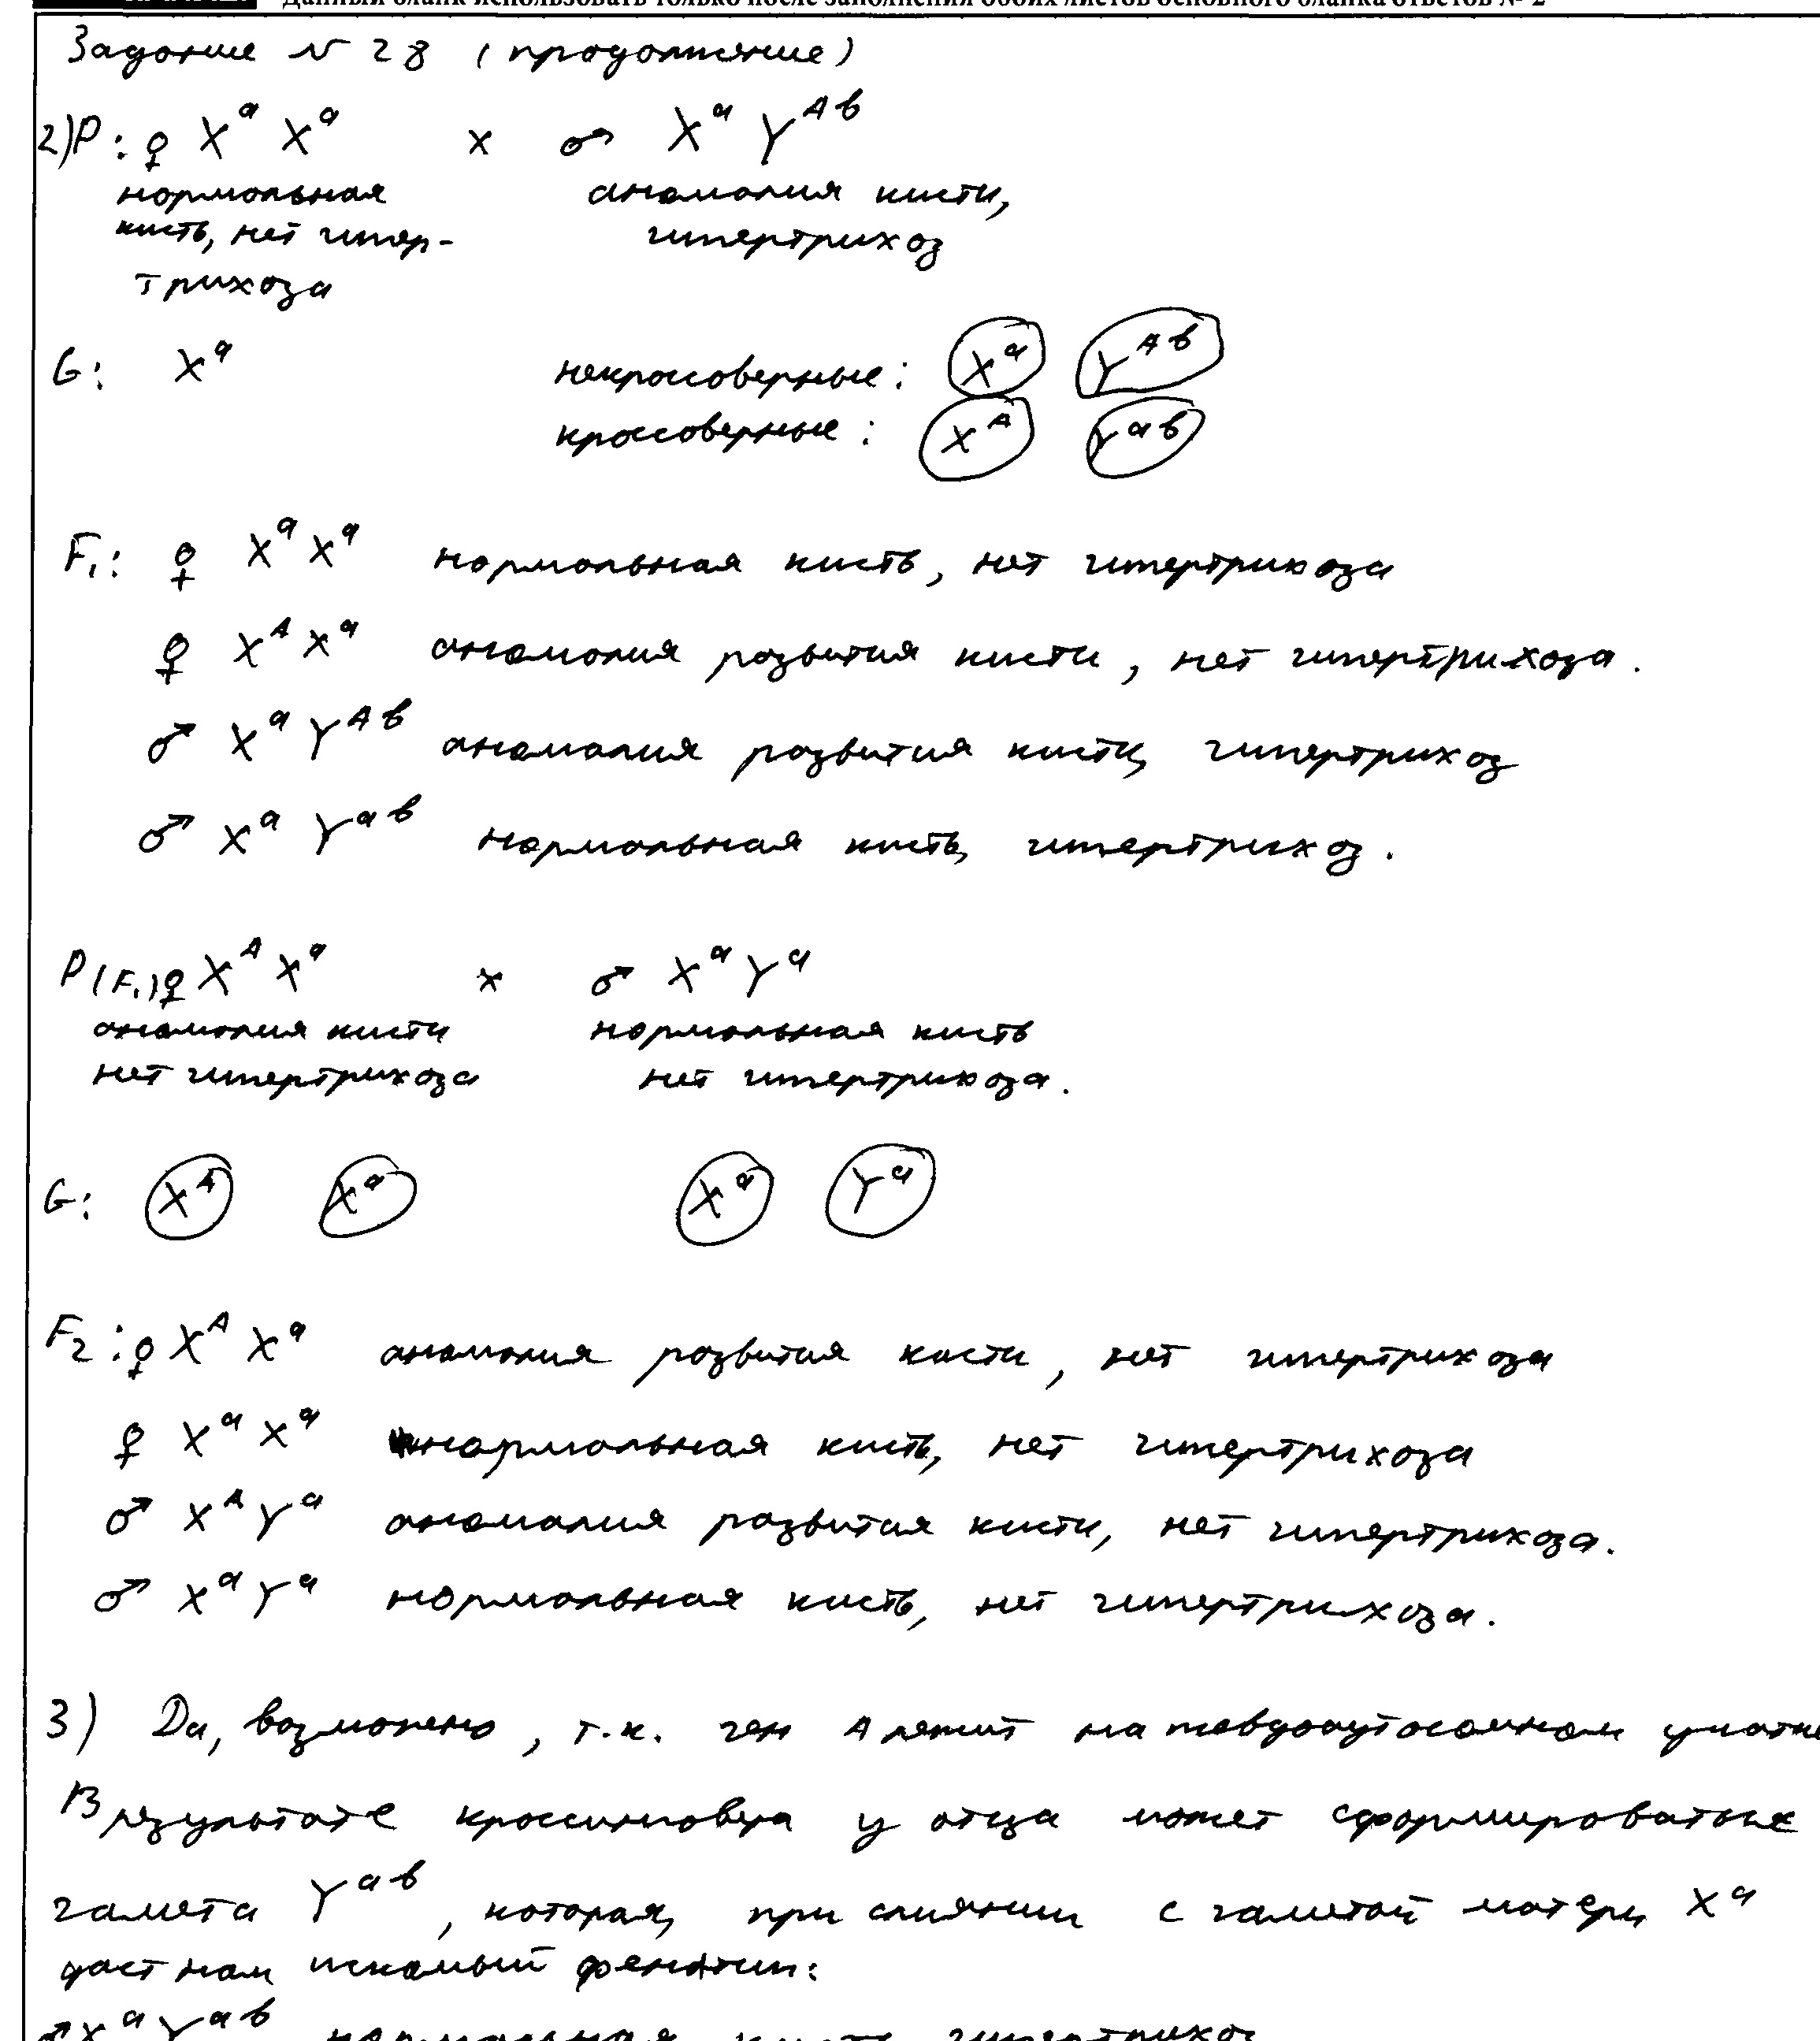 Данный бланк использовать только после заполнения обоих листов основного бланка ответов № 2
Задание N 28 (продолжение)
2) P: ♀ X^a X^a × ♂ X^a Y^Ab
нормальная аномалия кисти,
кисть, нет гипер- гипертрихоз
трихоза
G: X^a некроссоверные: X^a Y^Ab
кроссоверные: X^A Y^ab
F₁: ♀ X^a X^a нормальная кисть, нет гипертрихоза
♀ X^A X^a аномалия развития кисти, нет гипертрихоза.
♂ X^a Y^Ab аномалия развития кисти, гипертрихоз
♂ X^a Y^ab нормальная кисть, гипертрихоз.
P(F₁) ♀ X^A X^a × ♂ X^a Y^a
аномалия кисти нормальная кисть
нет гипертрихоза нет гипертрихоза.
G: X^A X^a X^a Y^a
F₂: ♀ X^A X^a аномалия развития кисти, нет гипертрихоза
♀ X^a X^a нормальная кисть, нет гипертрихоза
♂ X^A Y^a аномалия развития кисти, нет гипертрихоза.
♂ X^a Y^a нормальная кисть, нет гипертрихоза.
3) Да, возможно, т.к. ген A лежит на псевдоаутосомном участке
В результате кроссинговера у отца может сформироваться
гамета Y^ab, которая, при слиянии с гаметой матери X^a
даст нам искомый фенотип:
♂ X^a Y^ab нормальная кисть, гипертрихоз